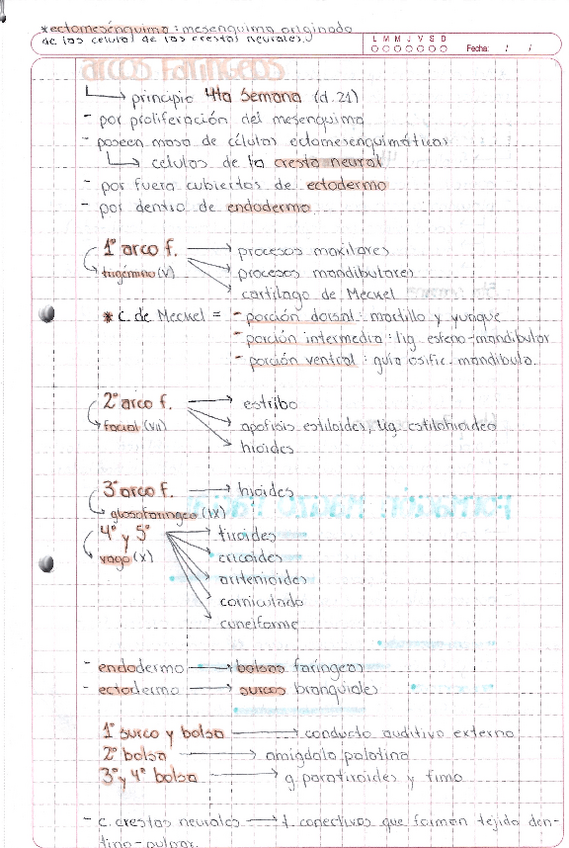 *ectomesénquima: mesenquima originado
de las celulas de las crestas neurales.
L M M J V S D
Fecha: / /
arcos Faríngeos
principio 4ta Semana (d.21)
- por proliferación del mesenquima
- poseen masa de células ectomesenquimáticas
celulas de la cresta neural
- por fuera cubiertos de ectodermo
- por dentro de endodermo
1° arco f. → procesos maxilares
trigémino (V) → procesos mandibulares
cartilago de Meckel
* C. de Meckel = - porción dorsal: martillo y yunque
- porción intermedia: lig. esfeno-mandibular
- porción ventral: guía osific. mandíbula.
2° arco f. → estribo
facial (VII) apofisis estiloides, lig. estilohioideo
hioides
3° arco f. → hioides
glosofaringeo (IX)
4° y 5° tiroides
vago (X) cricoides
aritenoides
corniculado
cuneiforme
- endodermo → bolsas faríngeas
- ectodermo → surcos branquiales
1° surco y bolsa → conducto auditivo externo
2° bolsa → amigdala palatina
3° y 4° bolsa → g. paratiroides y timo
- c. crestas neurales → t. conectivos que forman tejido den-
tino-pulpar.